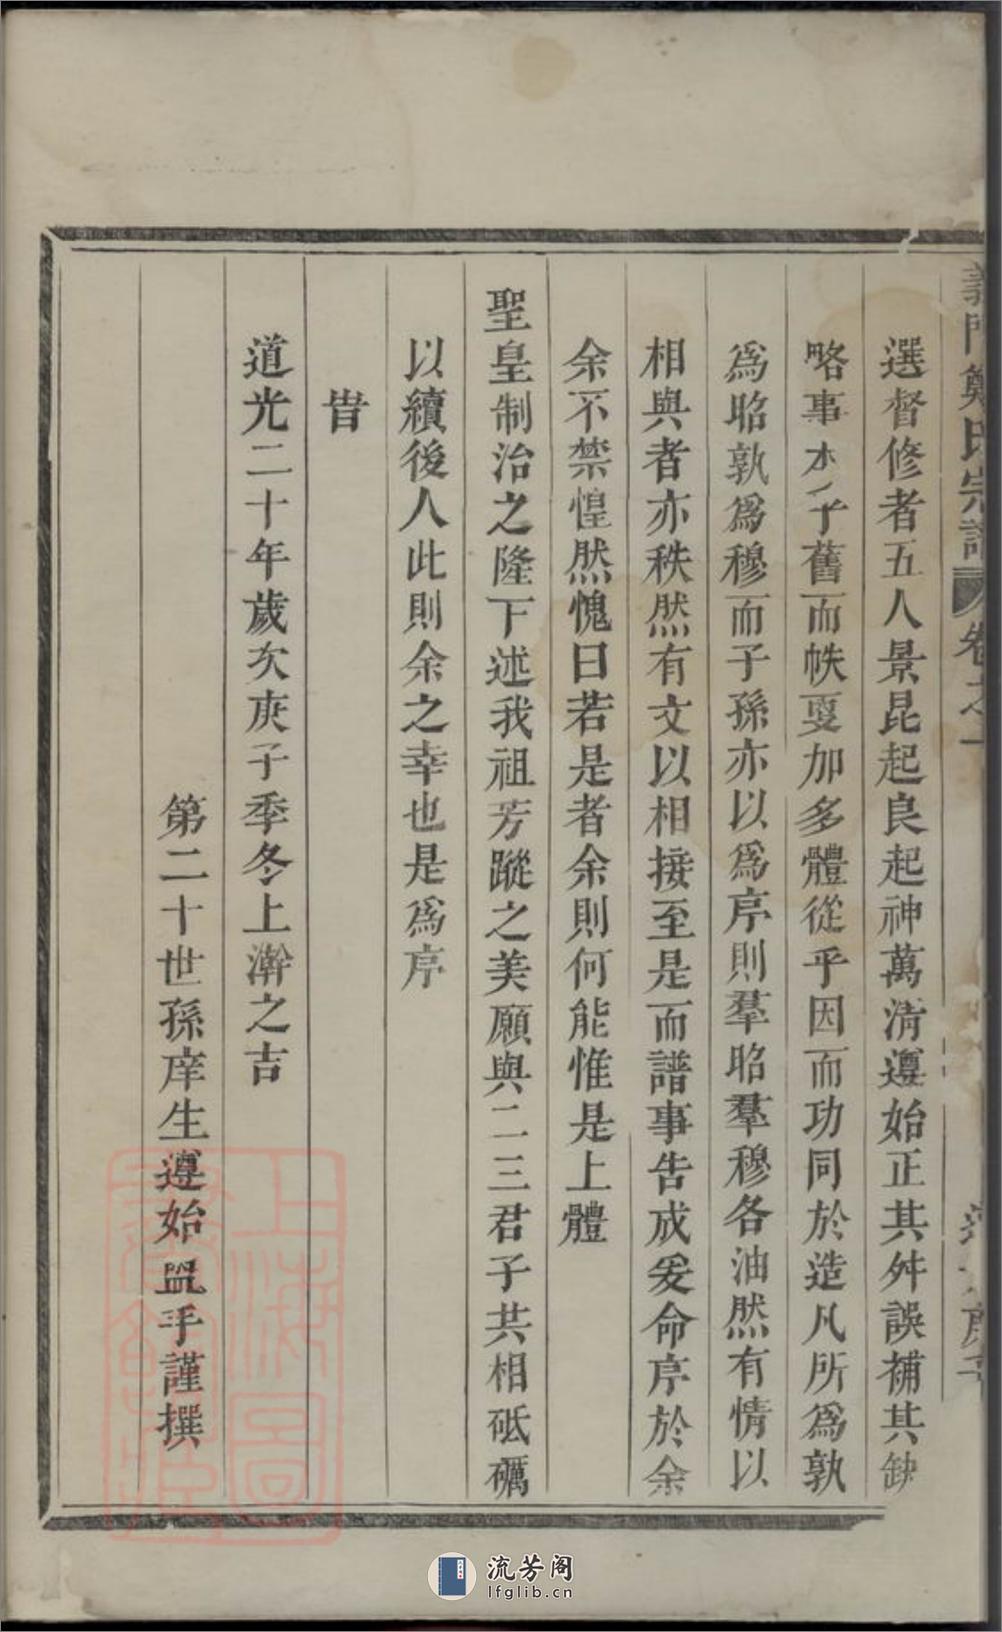 義門鄭氏宗譜 卷之一
選督修者五人景昆起良起神萬清遵始正其舛誤補其缺
略事本乎舊而帙更加多體從乎因而功同於造凡所爲孰
爲昭孰爲穆而子孫亦以爲序則羣昭羣穆各油然有情以
相與者亦秩然有文以相接至是而譜事告成爰命序於余
余不禁惶然愧曰若是者余則何能惟是上體
聖皇制治之隆下述我祖芳蹤之美願與二三君子共相砥礪
以續後人此則余之幸也是爲序
旹
道光二十年歲次庚子季冬上澣之吉
第二十世孫庠生遵始盥手謹撰
上海圖書館藏
流芳阁
lfglib.cn